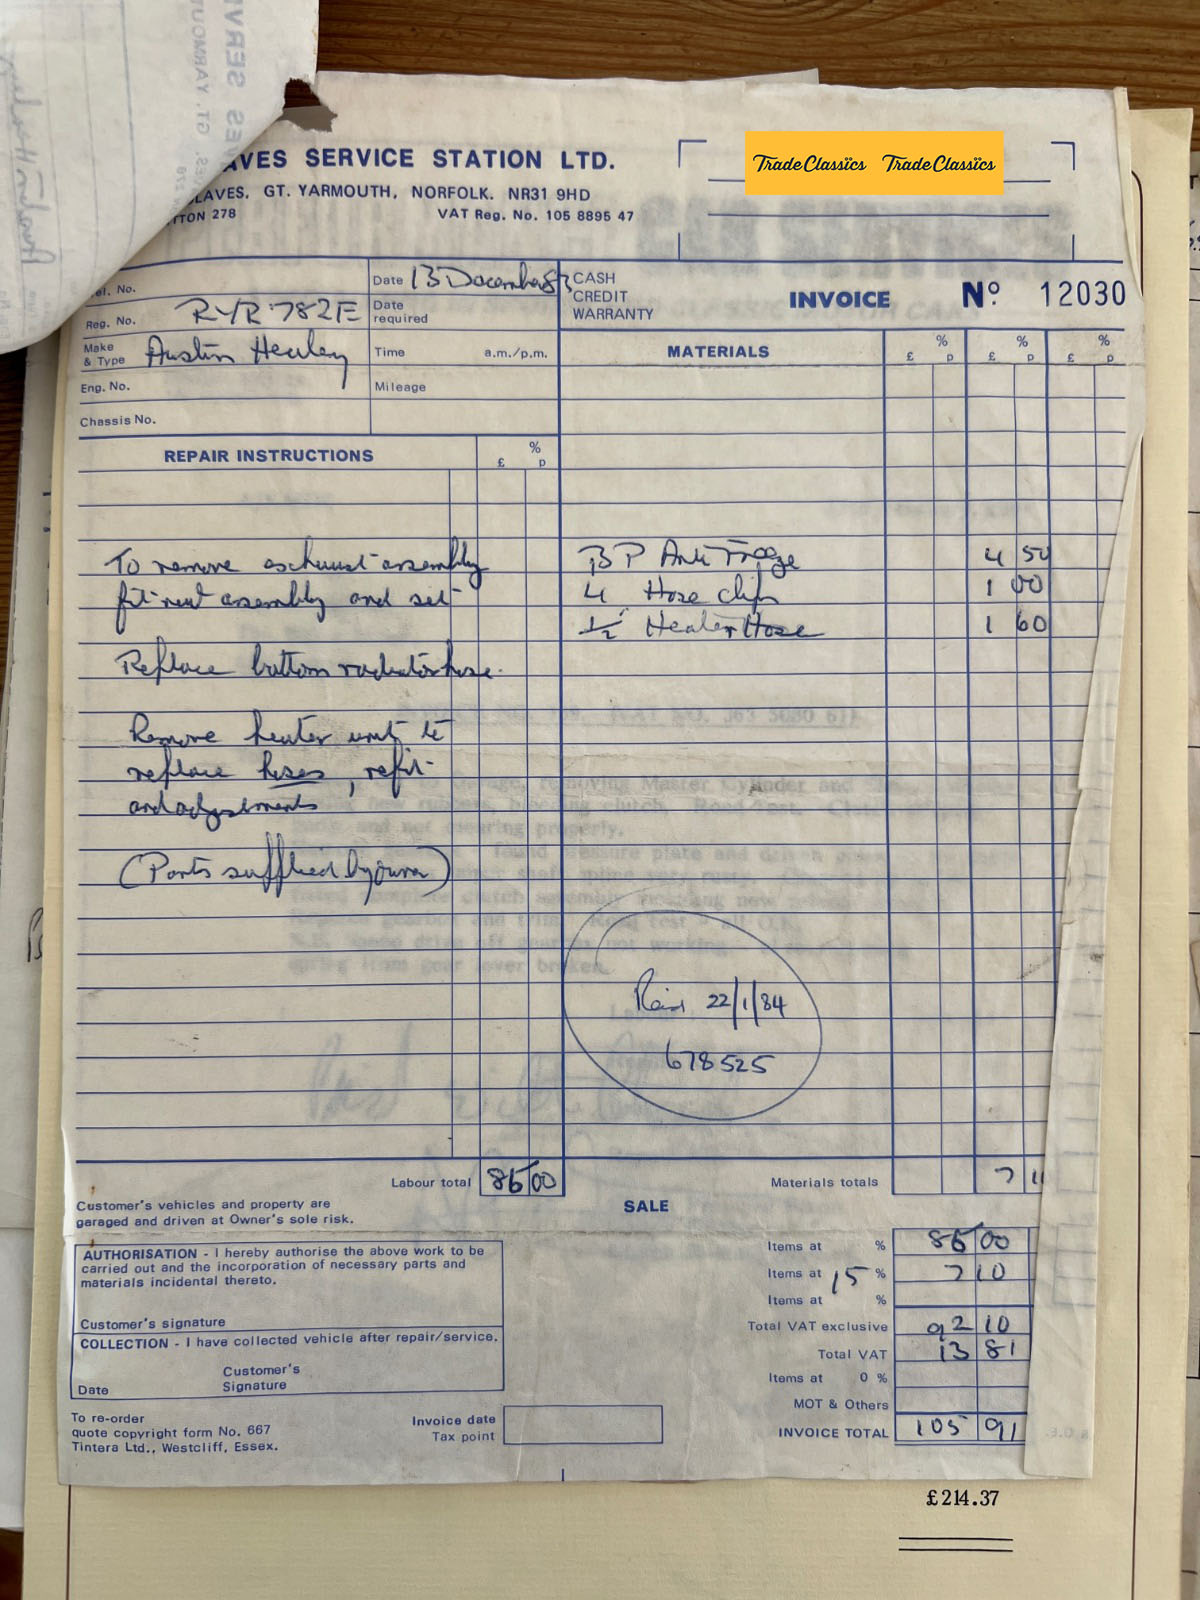 AVES SERVICE STATION LTD.
LAVES, GT. YARMOUTH, NORFOLK. NR31 9HD
TTON 278 VAT Reg. No. 105 8895 47
TradeClassics TradeClassics
el. No.
Date 13 December 83
CASH
CREDIT
WARRANTY
INVOICE No 12030
Reg. No. RYR 782E
Date required
Make & Type Austin Healey
Time a.m./p.m.
Eng. No.
Mileage
Chassis No.
MATERIALS £ % p £ % p £ % p
REPAIR INSTRUCTIONS £ % p
To remove exhaust assembly
fit new assembly and set
Replace bottom radiator hose.
Remove heater unit to
replace hoses, refit
and adjustments
(Parts supplied by owner)
BP Anti Freeze 4 50
4 Hose clips 1 00
1/2 Heater Hose 1 60
Paid 22/1/84
678525
Labour total 85 00
Materials totals 7 1
Customer's vehicles and property are
garaged and driven at Owner's sole risk.
SALE
AUTHORISATION - I hereby authorise the above work to be
carried out and the incorporation of necessary parts and
materials incidental thereto.
Customer's signature
COLLECTION - I have collected vehicle after repair/service.
Customer's
Date Signature
Items at % 85 00
Items at 15 % 7 10
Items at %
Total VAT exclusive 92 10
Total VAT 13 81
Items at 0 %
MOT & Others
INVOICE TOTAL 105 91
To re-order
quote copyright form No. 667
Tintera Ltd., Westcliff, Essex.
Invoice date
Tax point
£214.37